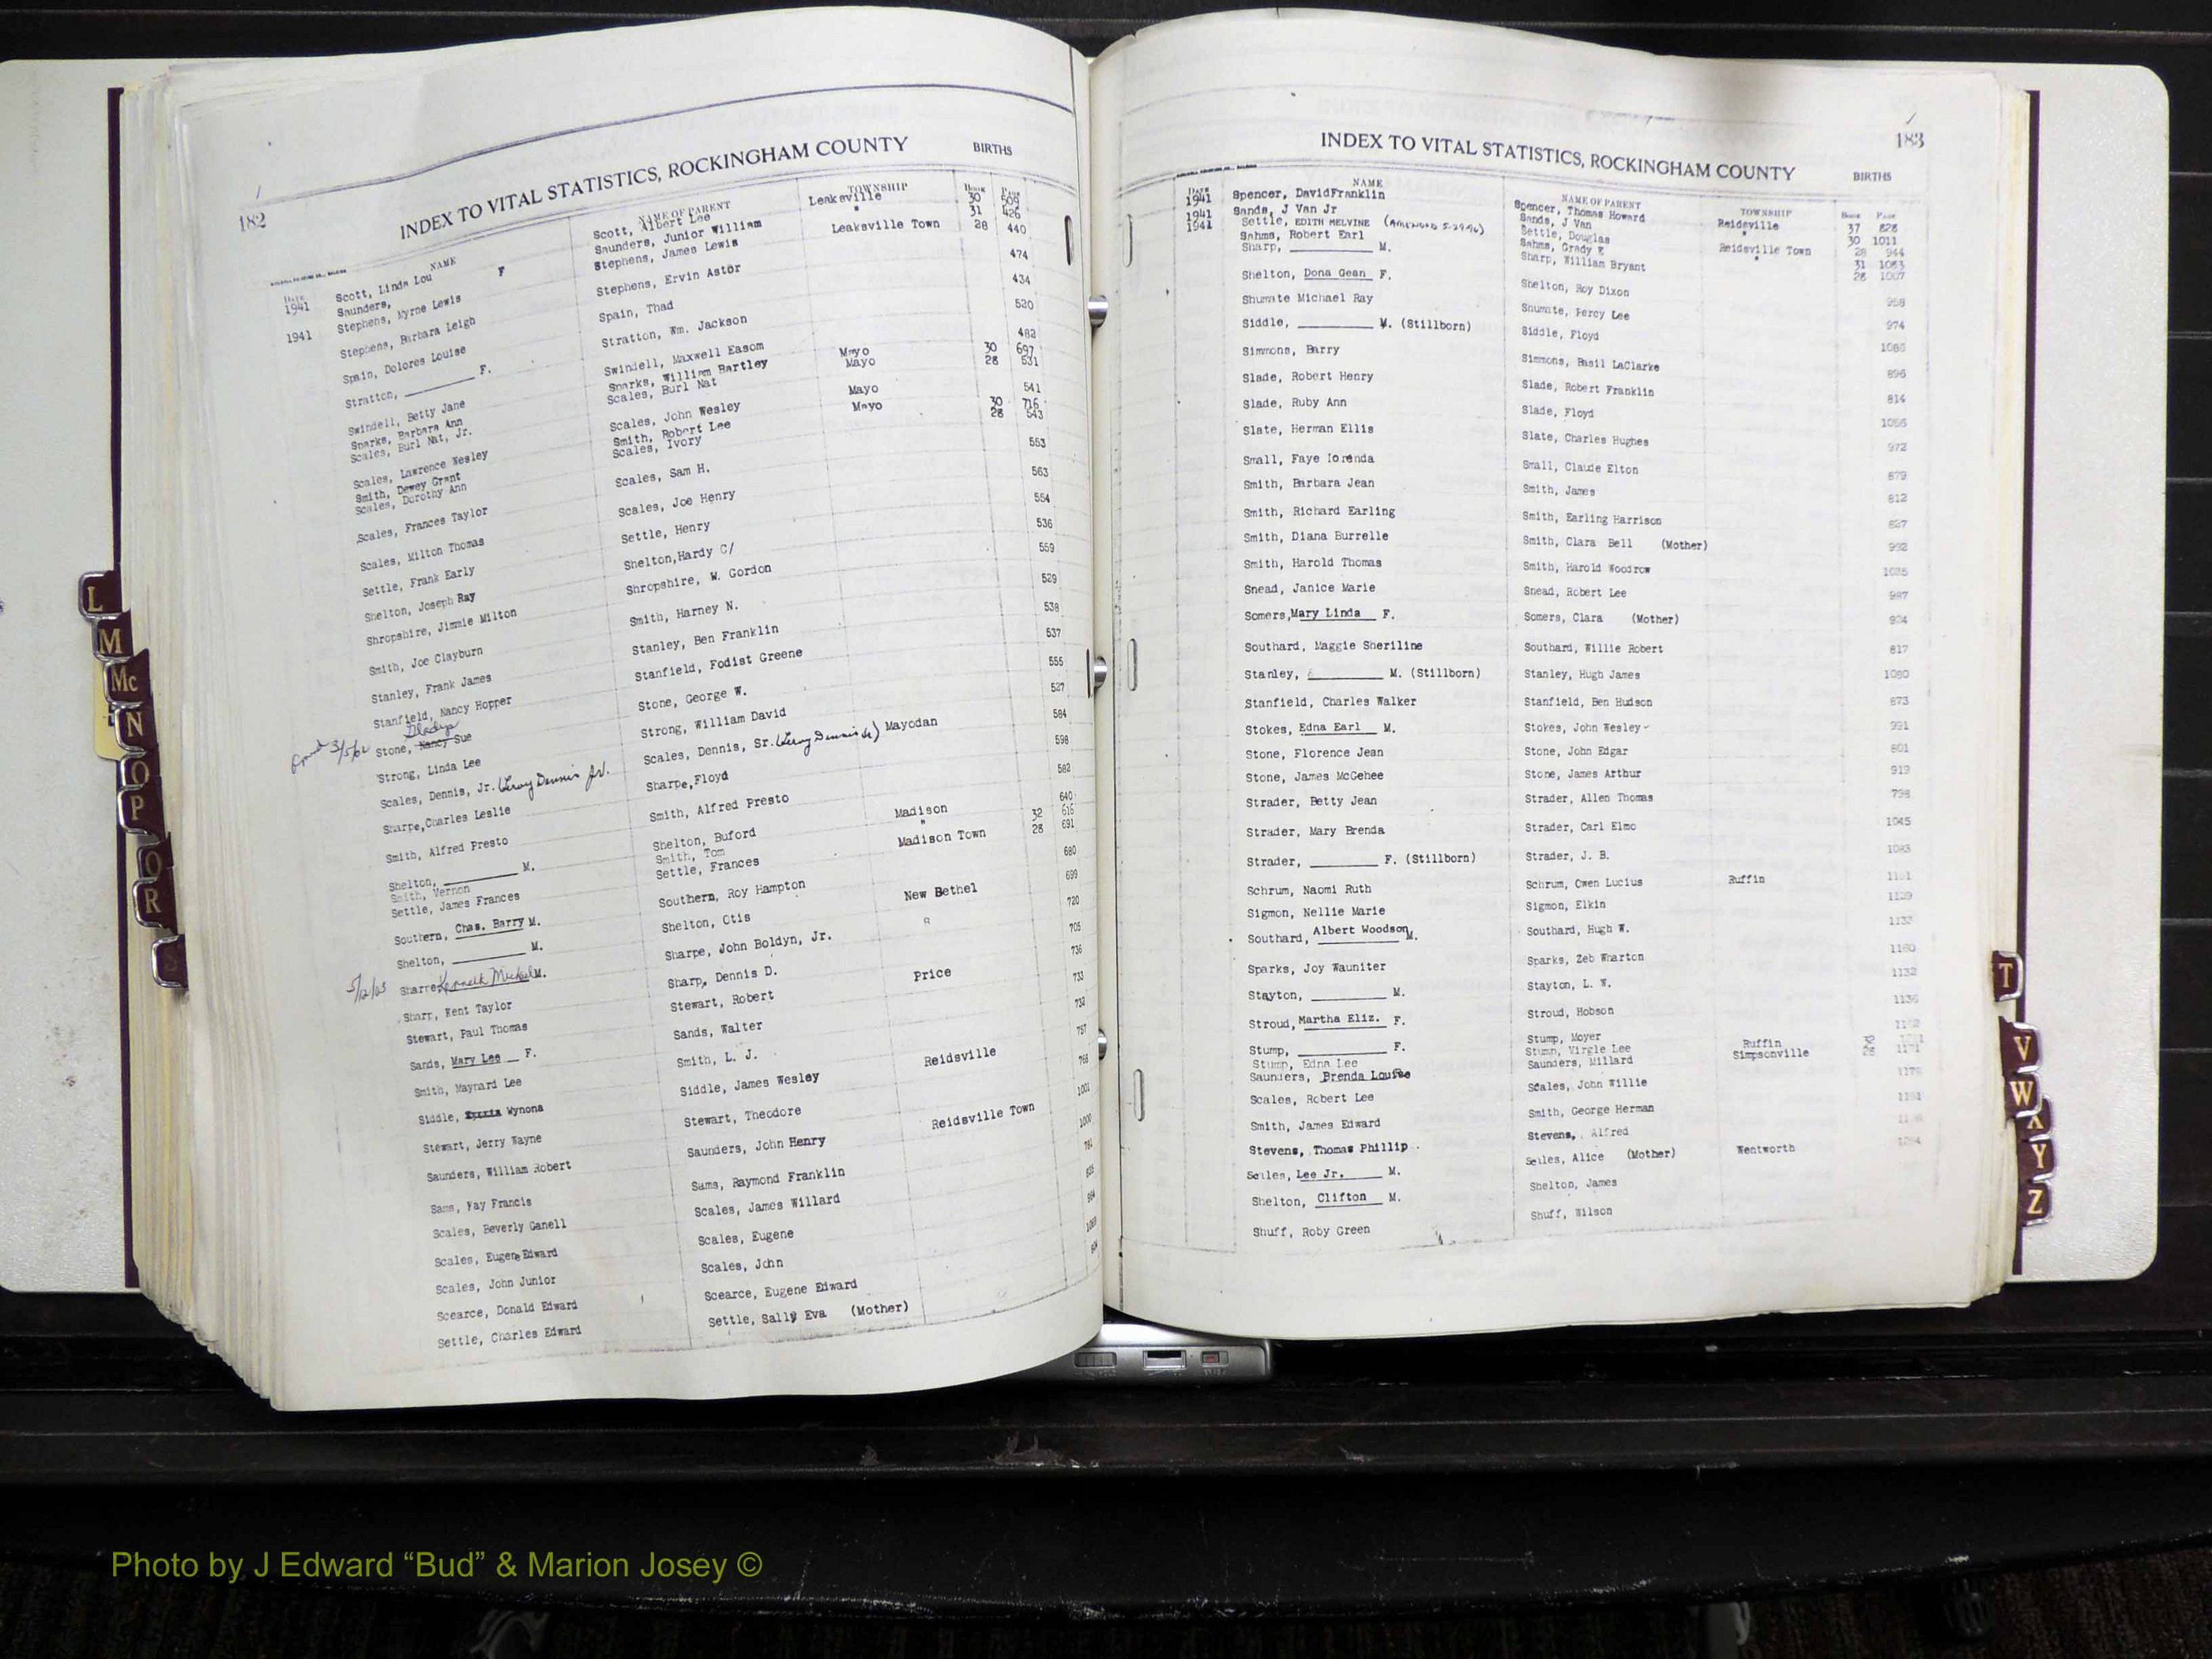 182
INDEX TO VITAL STATISTICS, ROCKINGHAM COUNTY BIRTHS
DATE NAME NAME OF PARENT TOWNSHIP BOOK PAGE
1941 Scott, Linda Lou Scott, Albert Lee Leaksville 30 509
Saunders, F Saunders, Junior William " 31 426
1941 Stephens, Myrne Lewis Stephens, James Lewis Leaksville Town 28 440
Stephens, Barbara Leigh Stephens, Ervin Astor 474
Spain, Dolores Louise Spain, Thad 434
Stratton, ________ F. Stratton, Wm. Jackson 520
Swindell, Betty Jane Swindell, Maxwell Easom 482
Sparks, Barbara Ann Sparks, William Bartley Mayo 30 697
Scales, Burl Nat, Jr. Scales, Burl Nat Mayo 28 531
Scales, Lawrence Wesley Scales, John Wesley Mayo 541
Smith, Dewey Grant Smith, Robert Lee Mayo 30 716
Scales, Dorothy Ann Scales, Ivory 28 543
Scales, Frances Taylor Scales, Sam H. 553
Scales, Milton Thomas Scales, Joe Henry 563
Settle, Frank Early Settle, Henry 554
Shelton, Joseph Ray Shelton,Hardy C/ 536
Shropshire, Jimmie Milton Shropshire, W. Gordon 559
Smith, Joe Clayburn Smith, Harney N. 529
Stanley, Frank James Stanley, Ben Franklin 538
Stanfield, Nancy Hopper Stanfield, Fodist Greene 537
3/5/62 Stone, Nancy Gladys Sue Stone, George W. 555
Strong, Linda Lee Strong, William David 527
Scales, Dennis, Jr. (Leroy Dennis Jr. Scales, Dennis, Sr. (Leroy Dennis Sr) Mayodan 584
Sharpe,Charles Leslie Sharpe,Floyd 598
Smith, Alfred Presto Smith, Alfred Presto 582
Shelton, ________ M. Shelton, Buford Madison 640
Smith, Vernon Smith, Tom " 32 616
Settle, James Frances Settle, Frances Madison Town 28 691
Southern, Chas. Barry M. Southern, Roy Hampton 680
Shelton, ________ M. Shelton, Otis New Bethel 699
5/12/03 Sharpe, Kenneth Michael M. Sharpe, John Boldyn, Jr. " 720
Sharp, Kent Taylor Sharp, Dennis D. 705
Stewart, Paul Thomas Stewart, Robert Price 736
Sands, Mary Lee F. Sands, Walter 733
Smith, Maynard Lee Smith, L. J. 732
Siddle, Wynona Siddle, James Wesley Reidsville 757
Stewart, Jerry Wayne Stewart, Theodore 768
Saunders, William Robert Saunders, John Henry Reidsville Town 1001
Sams, Fay Francis Sams, Raymond Franklin 1000
Scales, Beverly Ganell Scales, James Willard
Scales, Eugene Edward Scales, Eugene
Scales, John Junior Scales, John
Scearce, Donald Edward Scearce, Eugene Edward
Settle, Charles Edward Settle, Sally Eva (Mother)
183
INDEX TO VITAL STATISTICS, ROCKINGHAM COUNTY BIRTHS
DATE NAME NAME OF PARENT TOWNSHIP BOOK PAGE
1941 Spencer, DavidFranklin Spencer, Thomas Howard Reidsville 37 828
1941 Sands, J Van Jr Sands, J Van " 30 1011
1941 Settle, EDITH MELVINE (AMENDED 5-29-96) Settle, Douglas Reidsville Town 28 944
Sahms, Robert Earl Sahms, Grady E " 31 1083
Sharp, ________ M. Sharp, William Bryant 28 1007
Shelton, Dona Gean F. Shelton, Roy Dixon 958
Shumate Michael Ray Shumate, Percy Lee 974
Siddle, ________ M. (Stillborn) Siddle, Floyd 1086
Simmons, Barry Simmons, Basil LaClarke 896
Slade, Robert Henry Slade, Robert Franklin 814
Slade, Ruby Ann Slade, Floyd 1056
Slate, Herman Ellis Slate, Charles Hughes 972
Small, Faye Lorenda Small, Claude Elton 879
Smith, Barbara Jean Smith, James 812
Smith, Richard Earling Smith, Earling Harrison 827
Smith, Diana Burrelle Smith, Clara Bell (Mother) 992
Smith, Harold Thomas Smith, Harold Woodrow 1025
Snead, Janice Marie Snead, Robert Lee 987
Somers,Mary Linda F. Somers, Clara (Mother) 924
Southard, Maggie Sheriline Southard, Willie Robert 817
Stanley, ________ M. (Stillborn) Stanley, Hugh James 1080
Stanfield, Charles Walker Stanfield, Ben Hudson 873
Stokes, Edna Earl M. Stokes, John Wesley 991
Stone, Florence Jean Stone, John Edgar 801
Stone, James McGehee Stone, James Arthur 919
Strader, Betty Jean Strader, Allen Thomas 798
Strader, Mary Brenda Strader, Carl Elmo 1045
Strader, ________ F. (Stillborn) Strader, J. B. 1083
Schrum, Naomi Ruth Schrum, Owen Lucius Ruffin
Sigmon, Nellie Marie Sigmon, Elkin 1129
Southard, Albert Woodson M. Southard, Hugh W.
Sparks, Joy Wauniter Sparks, Zeb Wharton 1160
Stayton, ________ M. Stayton, L. W. 1132
Stroud, Martha Eliz. F. Stroud, Hobson 1136
Stump, ________ F. Stump, Moyer
Stump, Edna Lee Stump, Virgle Lee Ruffin
Saunders, Brenda Louise Saunders, Millard Simpsonville 28 1171
Scales, Robert Lee Scales, John Willie
Smith, James Edward Smith, George Herman
Stevens, Thomas Phillip Stevens, Alfred
Seiles, Lee Jr. M. Seiles, Alice (Mother) Wentworth
Shelton, Clifton M. Shelton, James
Shuff, Roby Green Shuff, Wilson
L
M
Mc
N
O
P
Q
R
S
T
V
W
X
Y
Z
Photo by J Edward “Bud” & Marion Josey ©